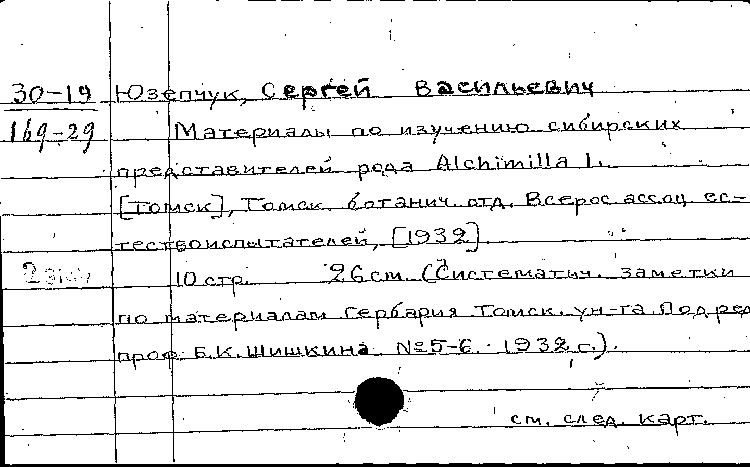 30-19 Юзепчук, Сергей Васильевич
169-29 Материалы по изучению сибирских
представителей рода Alchimilla L.
[Томск], Томск. ботанич. отд. Всерос. ассоц. ес-
тествоиспытателей, [1932].
10 стр. 26 см. (Систематич. заметки
по материалам Гербария Томск. ун-та. Под ред.
проф. Б.К. Шишкина. №5-6. 1932 г.).
см. след. карт.